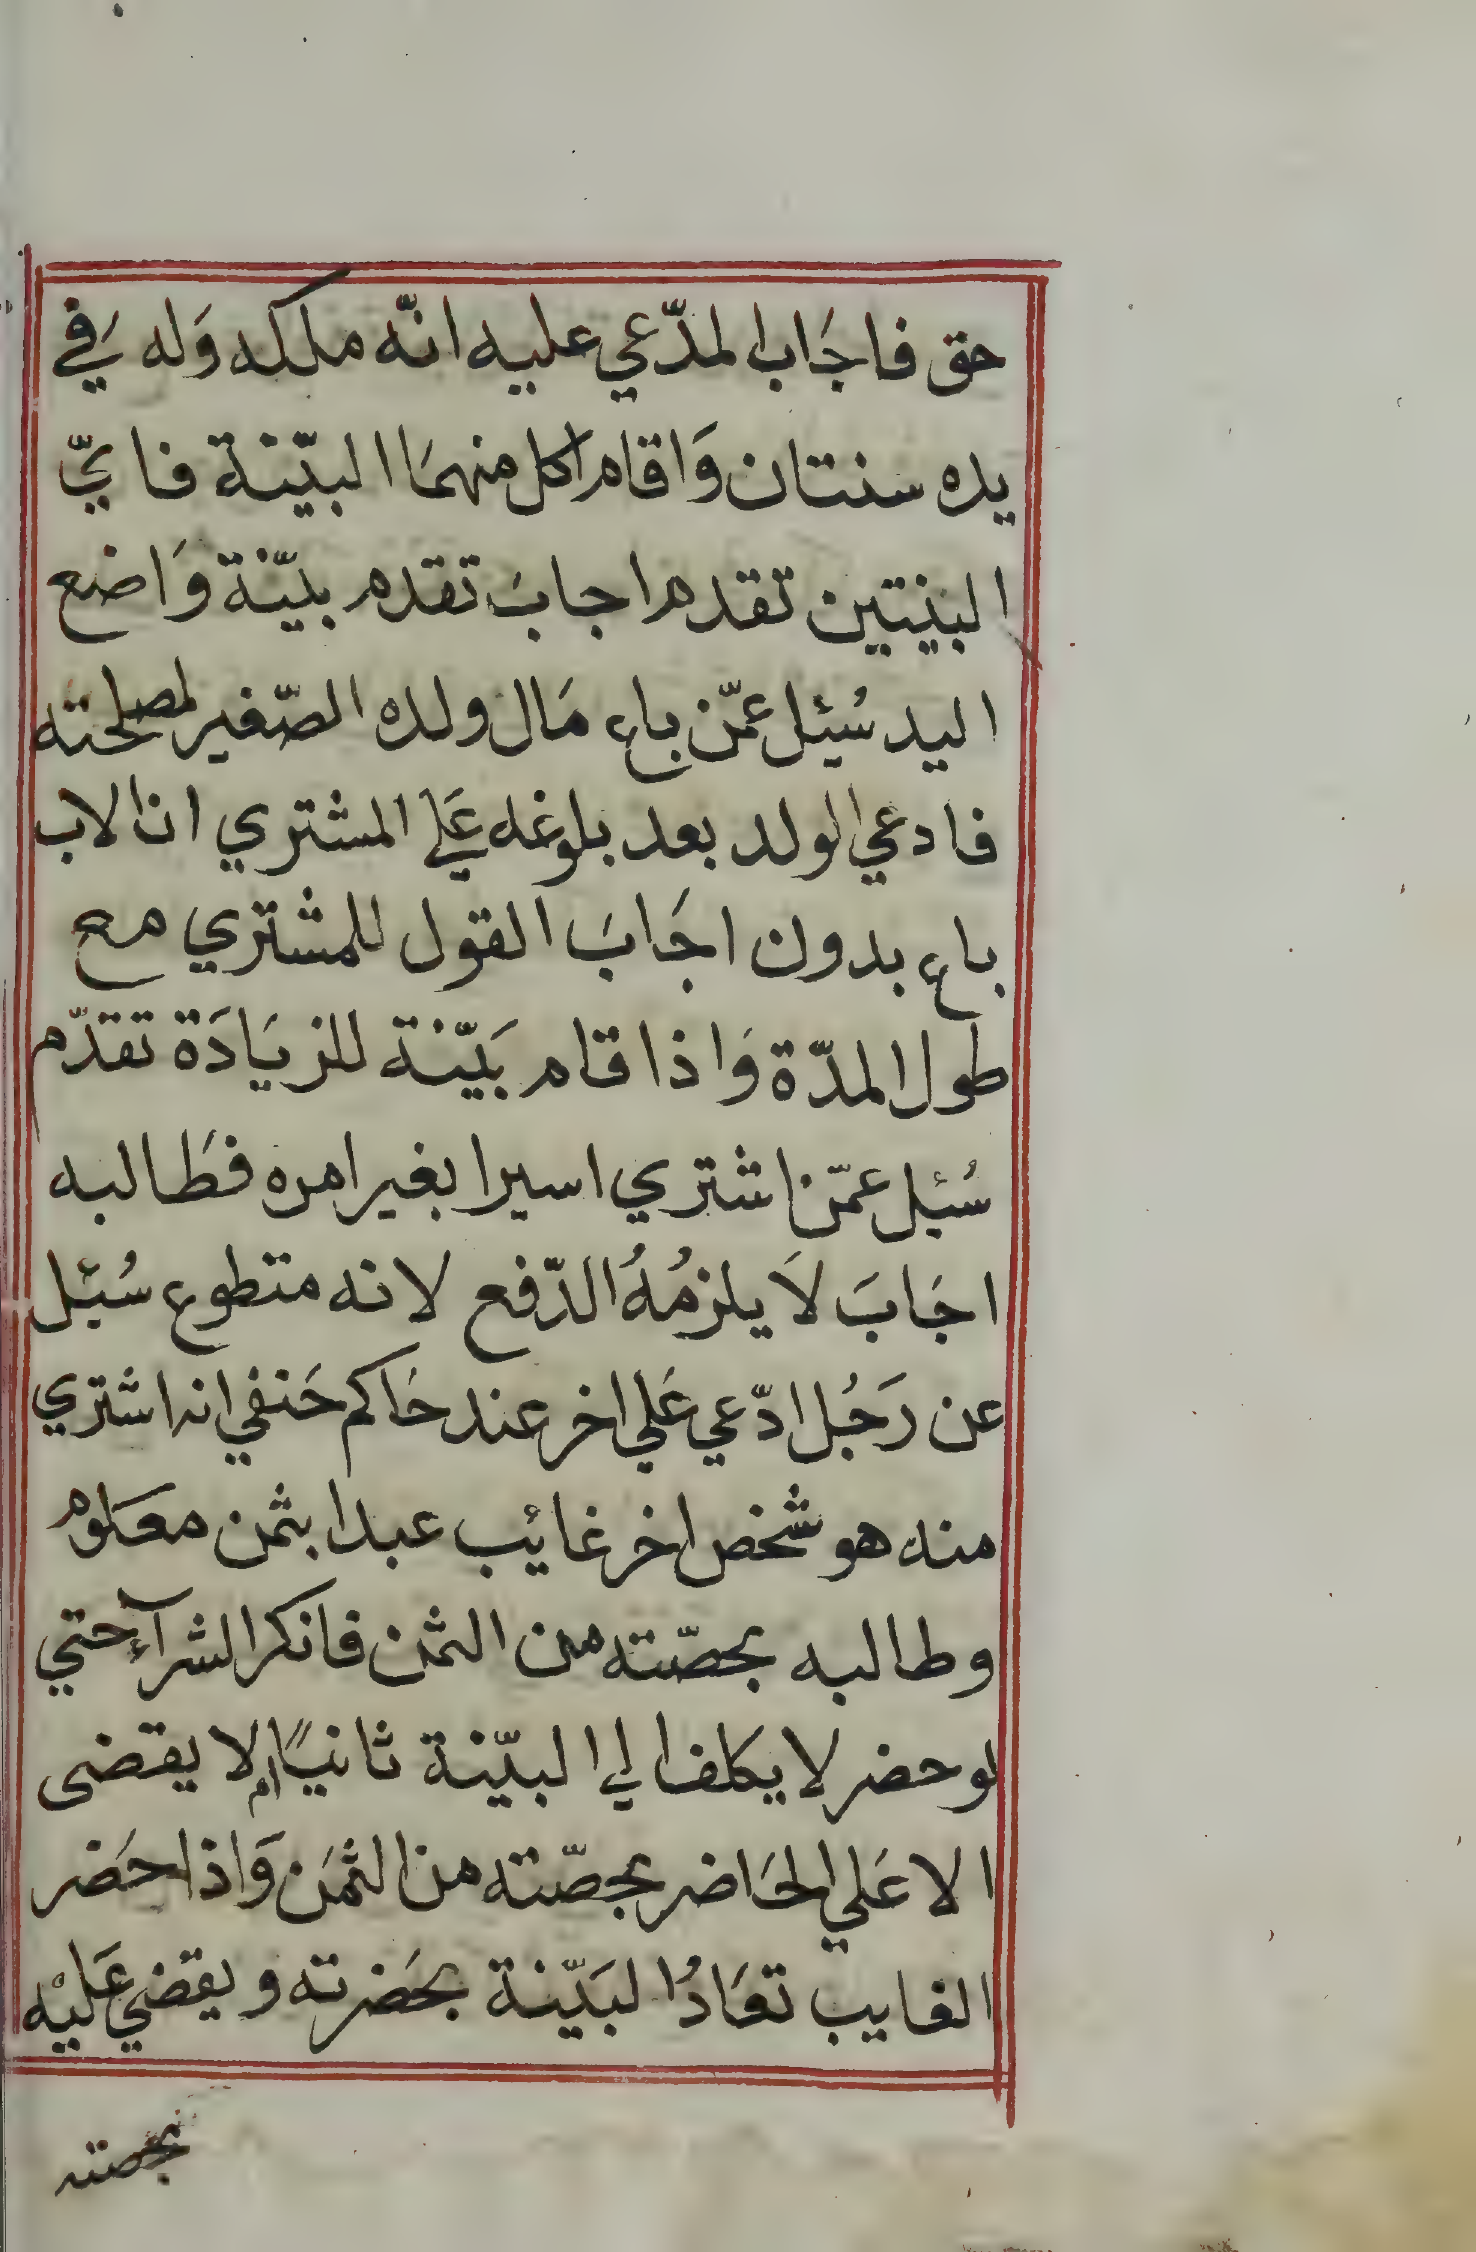 حق فاجَاب المدّعي عليه انّه ملكه وَله في
يده سنتان وَاقام كل منهمَا البيّنة فايّ
البنيتين تقدم اجابَ تقدم بيّنة وَاضع
اليد سُئل عمّن باع مَال ولده الصّغير لمصلحته
فادعي الولد بعد بلوغه عَلي المشتري ان الاب
باع بدون اجَابَ القول للمشتري مع
طول المدّة وَاذا قام بَيّنة للزيَادَة تقدّم
سُئل عمّن اشتري اسيرا بغير امره فطَالبه
اجَابَ لاَ يلزمُهُ الدّفع لانه متطوع سُئل
عن رَجُل ادّعي عَلي اخر عند حَاكم حَنفي انه اشتري
منه هو شخص اخر غائب عبدا بثمن معَلوم
وطالبه بحصّته من الثمن فانكر الشرآء حتي
لو حضر لا يكلف الي البيّنة ثانيًا ام لا يقضى
الا عَلي الحَاضر بحصّته من الثمَن وَاذا حَضر
الغايب تعَادُ البَيّنة بحَضرته ويقضي عَليْه
بحصته